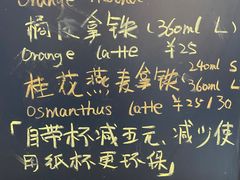 Orange
橘皮拿铁（360ml L）
Orange latte ¥25
桂花燕麦拿铁 240ml S
360ml L
Osmanthus latte ¥25/30
「自带杯减五元、减少使
用纸杯更环保」